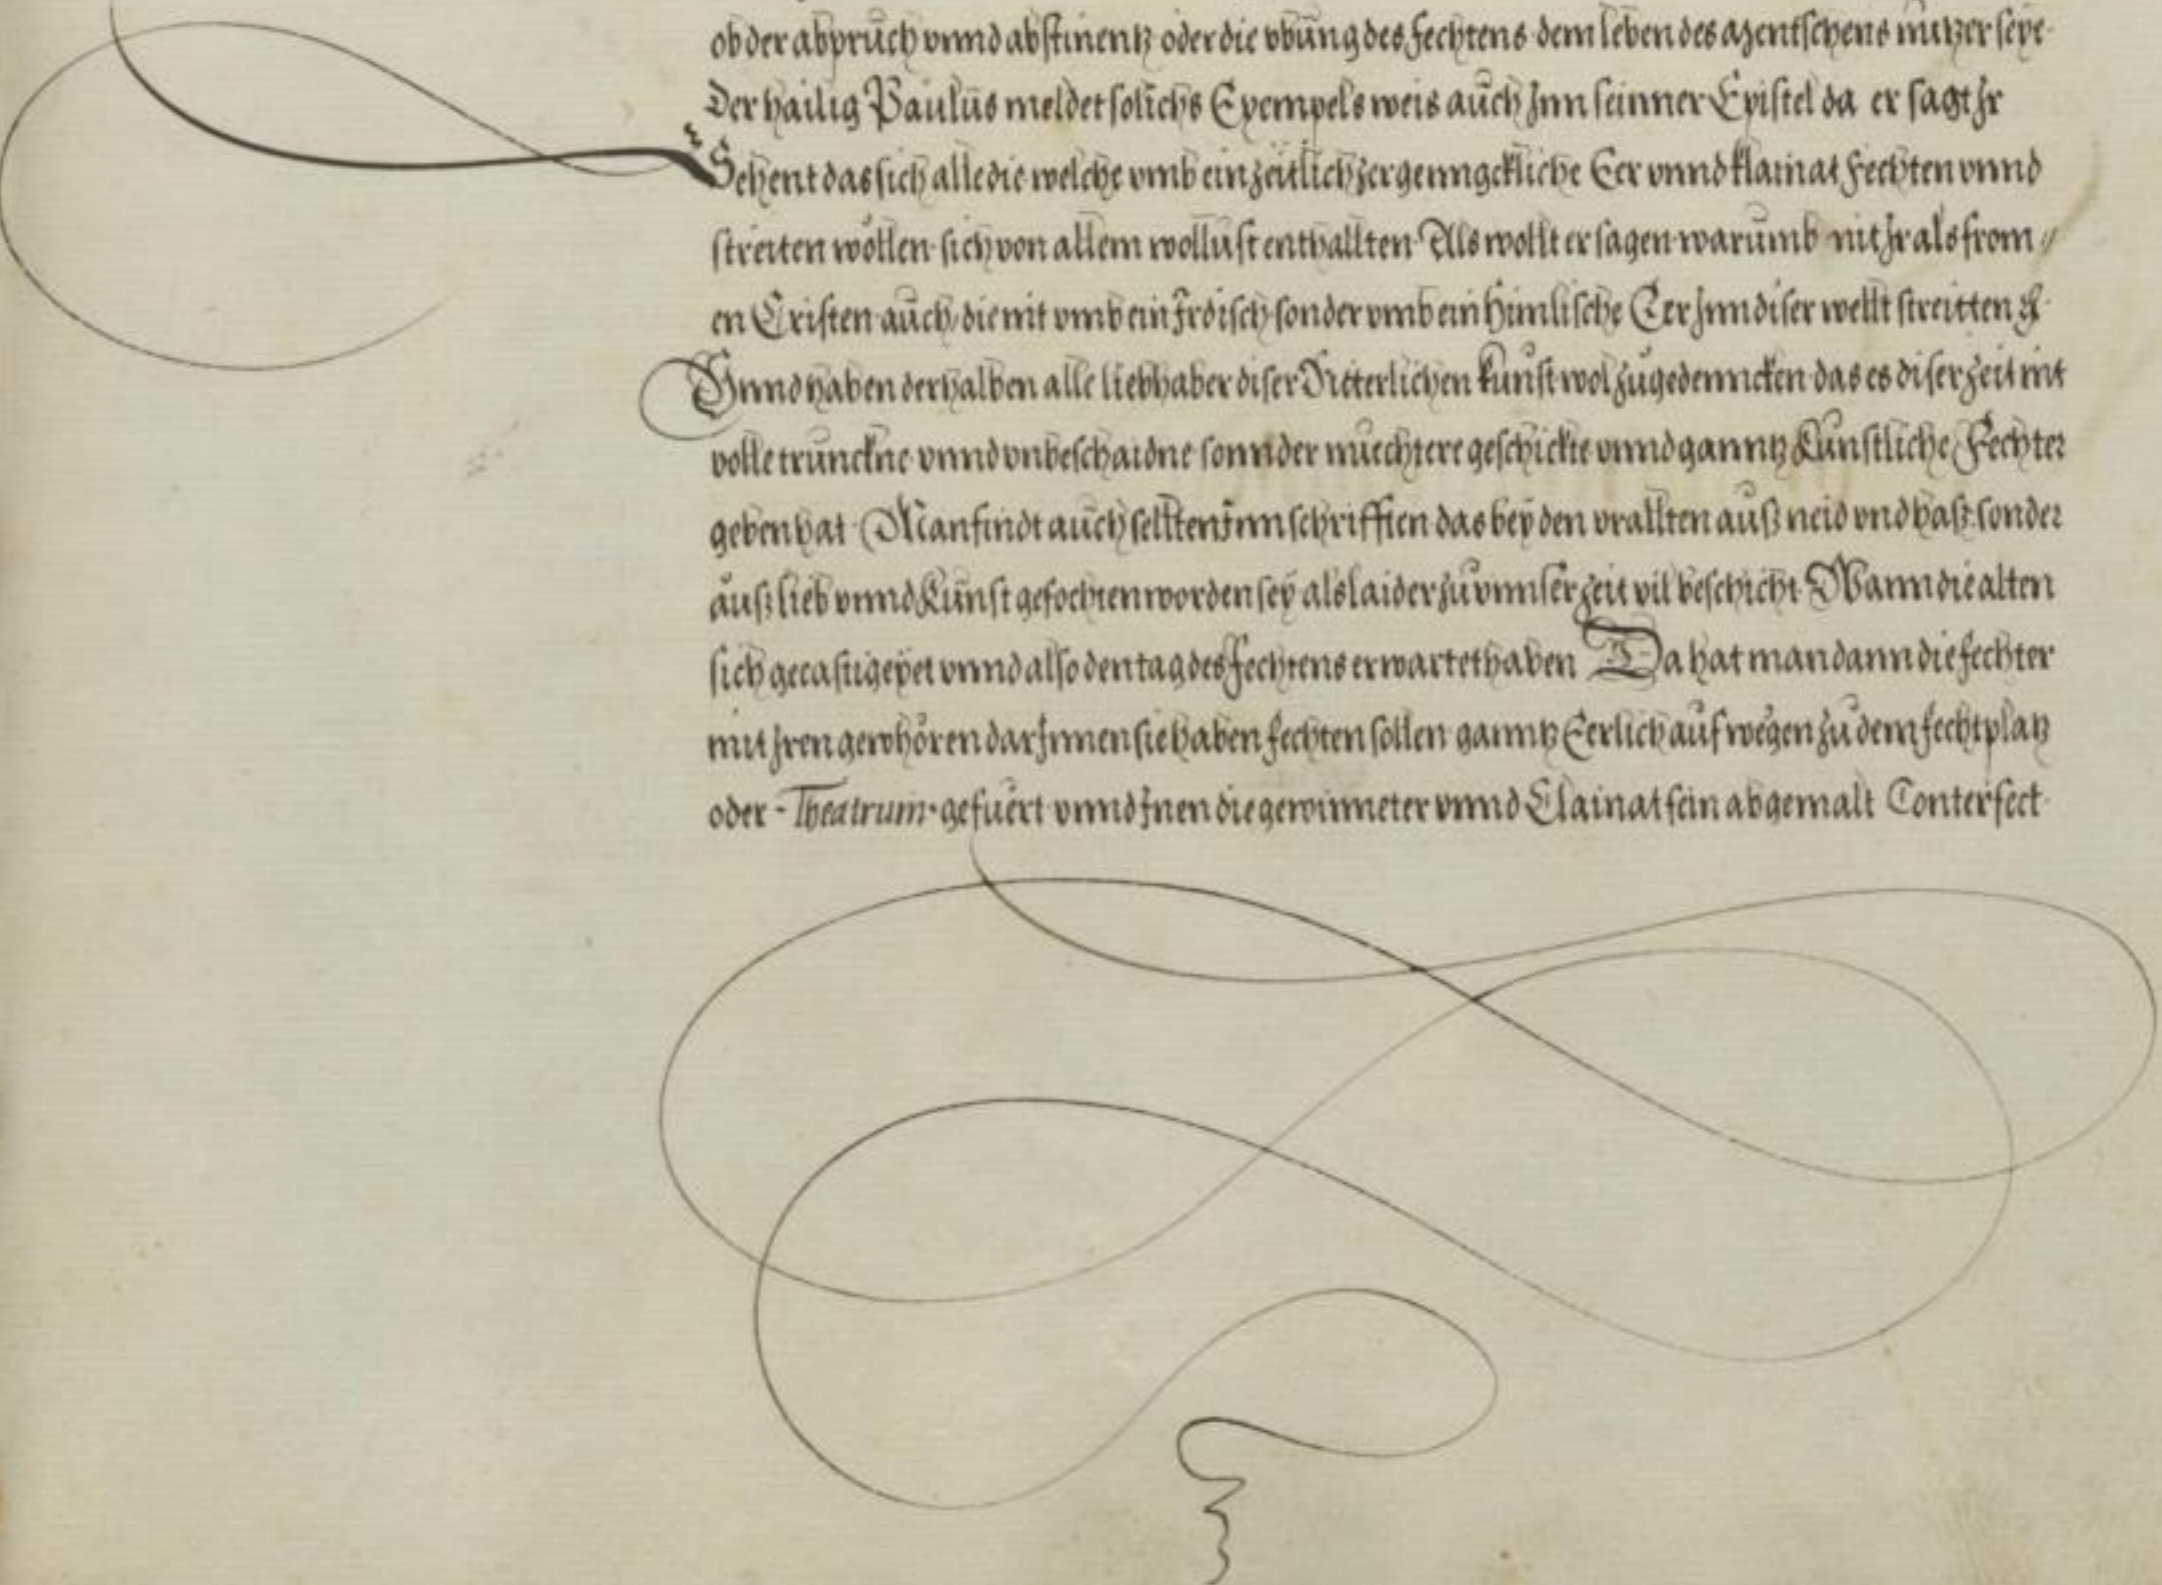 ob der abpruch vnnd abstinentz oder die vbung des fechtens dem leben des Mentschens nutzer seye
Der hailig Paulus meldet solichs Exempels weis auch Inn seinner Epistel da er sagt Ir
Sehent das sich alle die welche vmb ein zeitlich zergenngckliche Eer vnnd klainat fechten vnnd
streiten wöllen sich von allem wollust enthallten Als wollt er sagen warumb nit Ir als from //
en Cristen auch, die nit vmb ein Irdisch sonder vmb ein himlische Eer Inn diser wellt streitten ꝛc.
Vnnd haben derhalben alle liebhaber diser Ritterlichen kunst wol zugedennncken das es diser zeit nit
volle trunckne vnnd vnbeschaidne sonnder nuechtere geschickte vnnd ganntz Kunstliche Fechter
geben hat Man findt auch sellten Inn schrifften das bey den vrallten auß neid vnd haß sonder
auß lieb vnnd Kunst gefochten worden sey als laider zu vnnser zeit vil beschicht Wann die alten
sich gecastigeyet vnnd also den tag des fechtens erwartet haben Da hat man dann die fechter
mit Iren gewhören dar Innen sie haben fechten sollen ganntz Eerlich auf wegen zu dem fechtplatz
oder - Theatrum - gefuert vnnd Inen die gewinneter vnnd Clainat fein abgemalt Conterfect